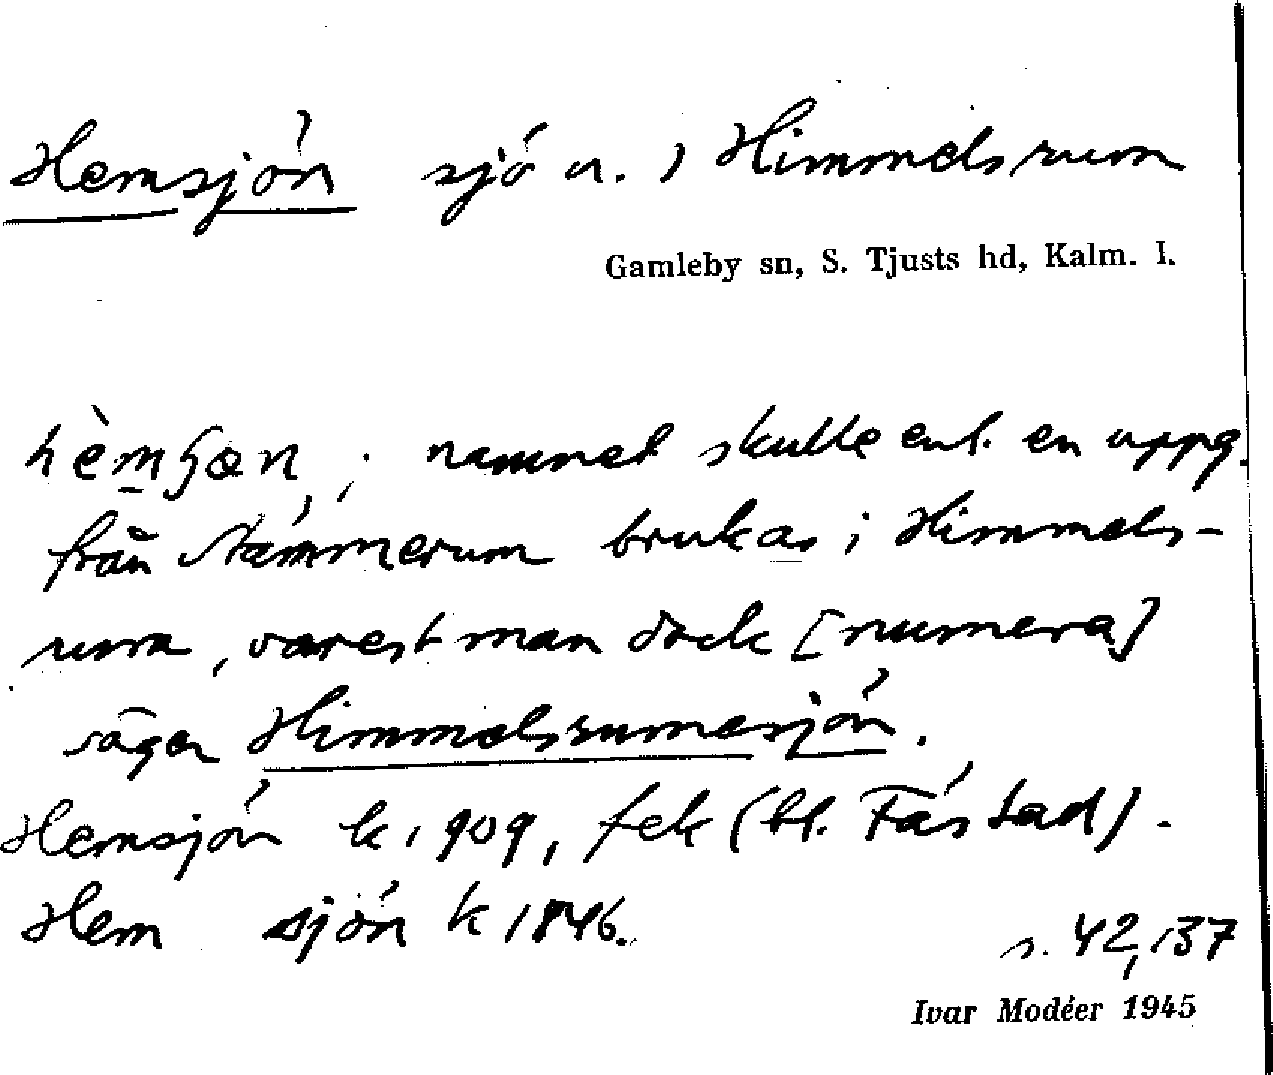 Hemsjön sjö n. i Himmelsrum
Gamleby sn, S. Tjusts hd, Kalm. l.
namnet skulle enl. en uppg.
från brukas i Himmels-
rum, varest man dock [numera]
säger Himmelsrumesjön.
Hemsjön k 1909, fek (bl. Fästad).
Hem sjön k 1846.
s. 42, 137
Ivar Modéer 1945